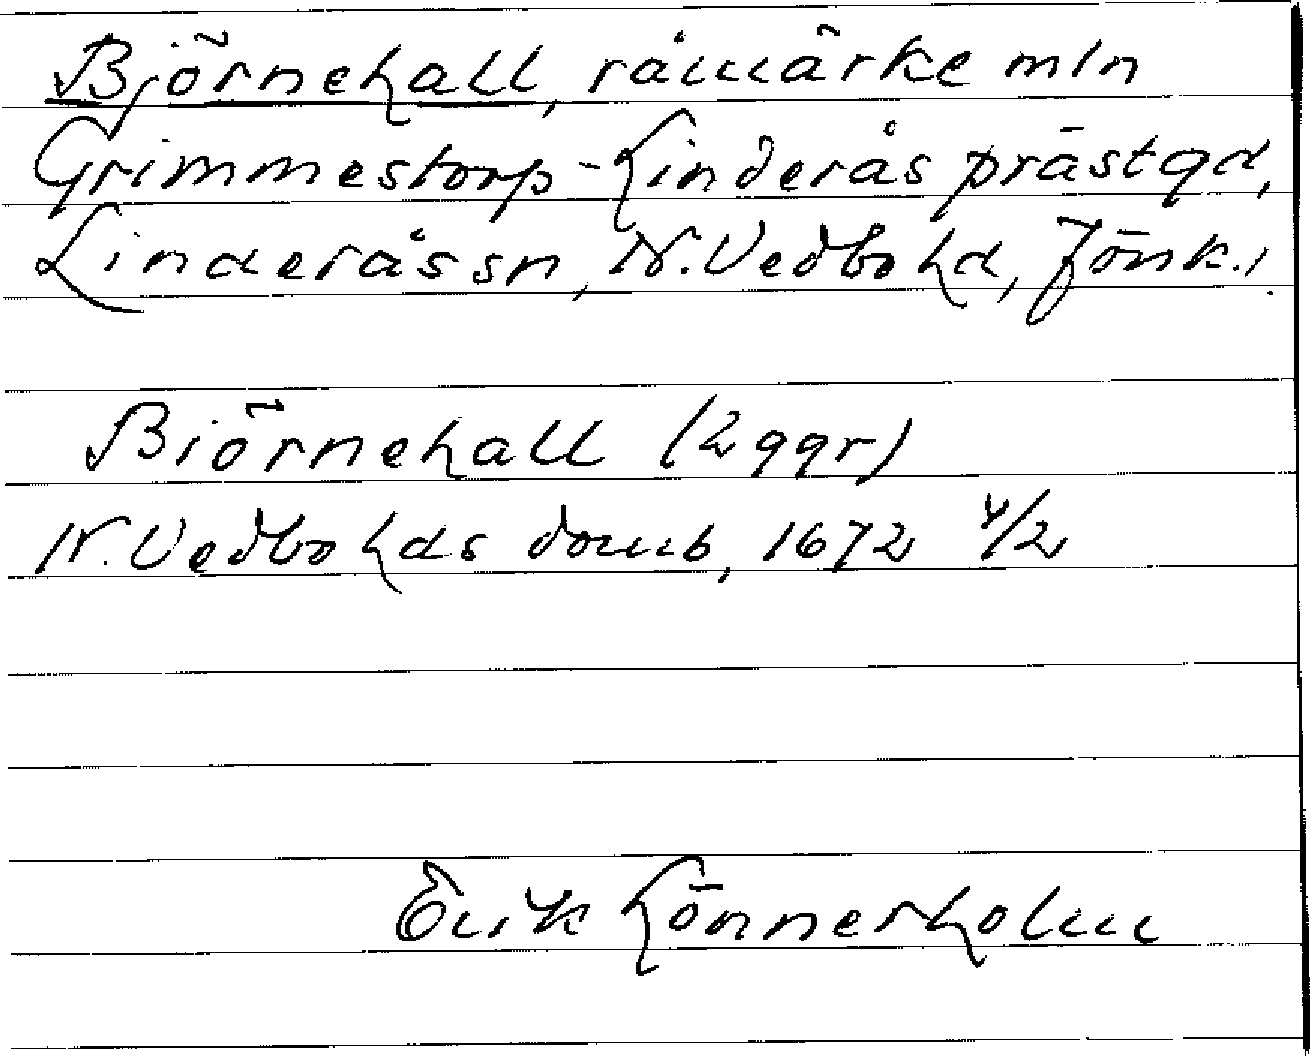 Björnehall, råmärke mln
Grimmestorp - Linderås prästgd,
Linderås sn, N. Vedbo hd, Jönk. l
Biörnehall (2 ggr)
N. Vedbo hds domb, 1672 4/2
Erik Lönnerholm